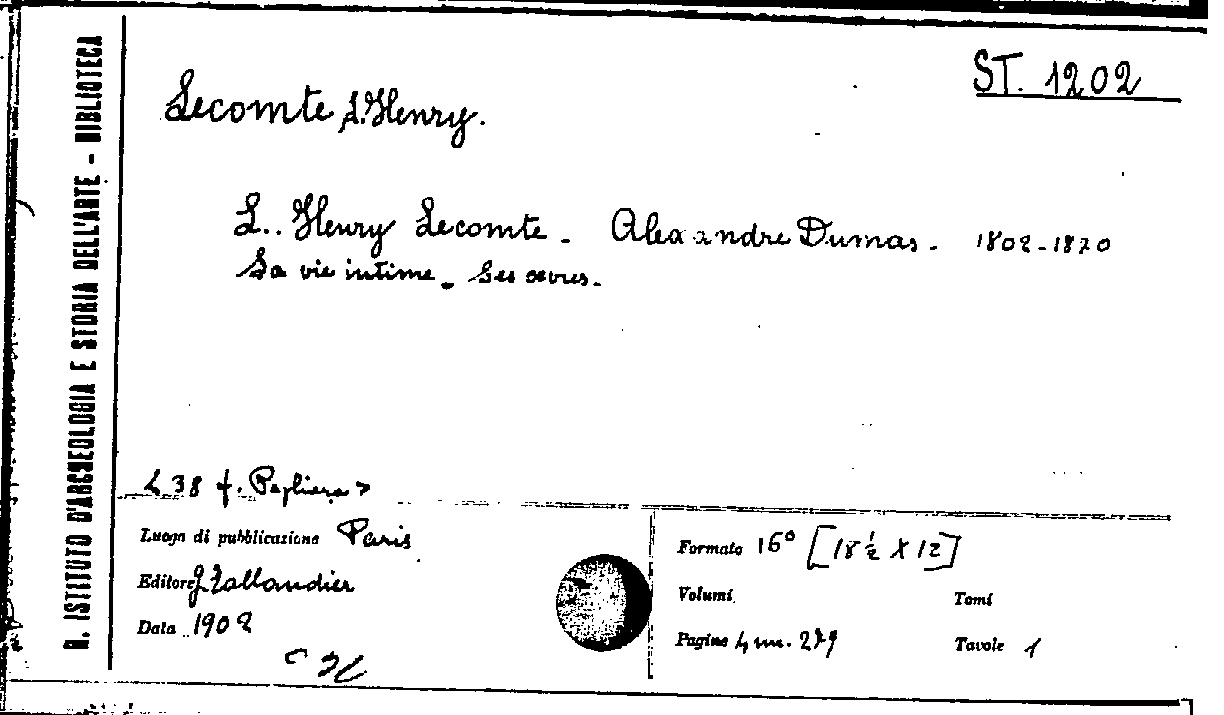 R. ISTITUTO D'ARCHEOLOGIA E STORIA DELL'ARTE - BIBLIOTECA
ST. 1202
Lecomte, L. Henry.
L.. Henry Lecomte. Alexandre Dumas. 1802-1870
Sa vie intime. Ses œuvres.
Luogo di pubblicazione Paris
Editore J. Tallandier
Data 1902
Formato 16° [18 ½ X 12]
Volumi
Tomi
Pagine 279
Tavole 1